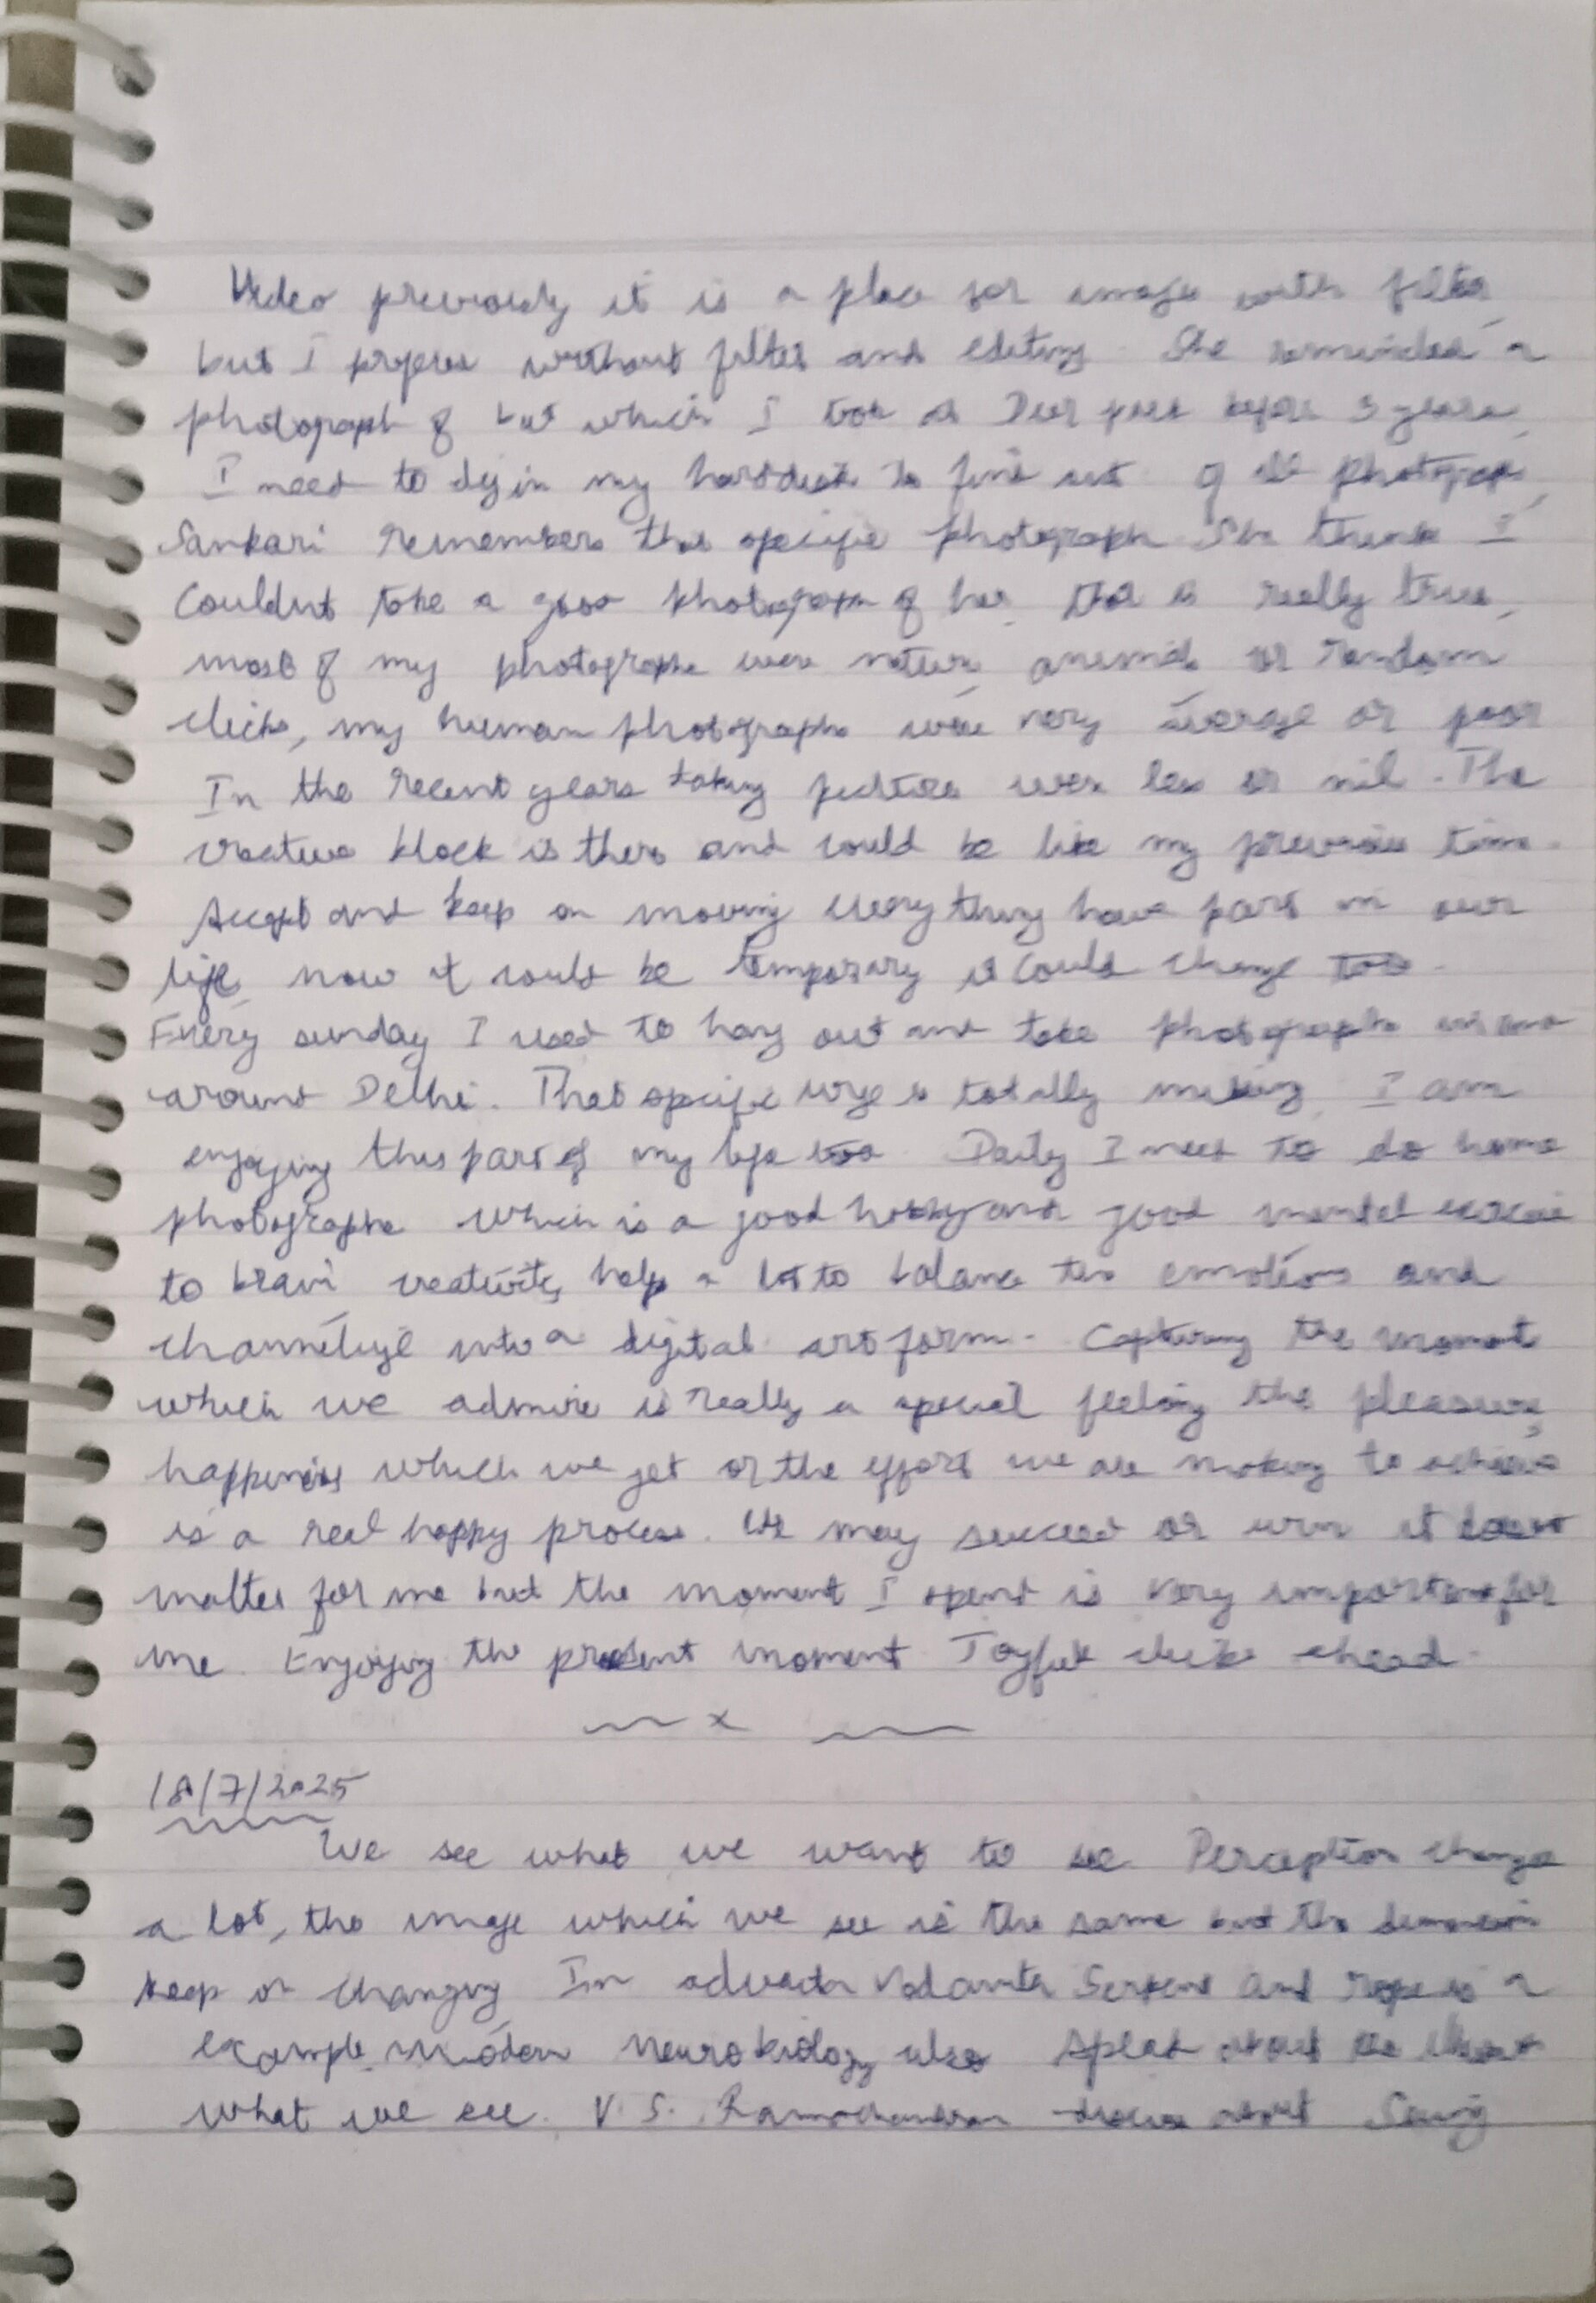 Video previously it is a place for image with filter,
but I prefere without filter and editing. She reminded a
photograph of which I took at Deer park before 3 years,
I need to dig in my harddisk to find out. of all photograph,
Sankari remembers that specific photograph. She think I
Couldnt take a good photograph of her, that is really true,
most of my photographs were nature, animals or random
clicks, my human photographs were very average or poor
In the recent years taking pictures were less or nil. The
creative block is there and could be like my previous time.
Accept and keep on moving every thing have part in our
life, now it could be temporary it could change too.
Every sunday I used to hang out and take photographs in and
around Delhi. That specific urge is totally missing, I am
enjoying this part of my life too. Daily I need to do home
photographs which is a good hobby and good mental exercise
to brain creativity, help a lot to balance the emotions and
channelige into a digital art form. Capturing the moment
which we admire is really a special feeling the pleasure,
happiness which we get or the effort we are making to achieve
is a real happy process. We may succeed or win it doesnt
matter for me but the moment I spent is very important for
me. Enjoying the present moment Joyful clicks ahead.
x
18/7/2025
We see what we want to see. Perception change
a lot, the image which we see is the same but the dimension
keep on changing. In advaita Vedanta Serpent and rope is a
example, modern neurobiology also about the
what we see. V.S. Ramachandran about Seeing